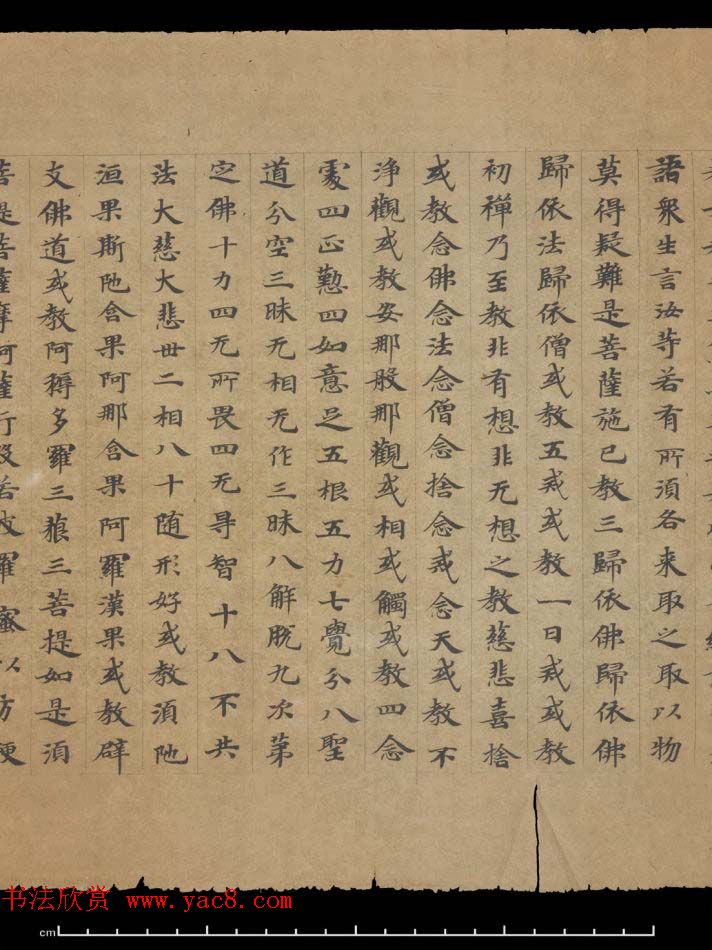 語衆生言汝等若有所湏各来取之取以物
莫得疑難是菩薩施已教三歸依佛歸依佛
歸依法歸依僧或教五戒或教一日戒或教
初禪乃至教非有想非无想之教慈悲喜捨
或教念佛念法念僧念捨念戒念天或教不
浄觀或教安那般那觀或相或觸或教四念
處四正懃四如意足五根五力七覺分八聖
道分空三昧无相无作三昧八解脫九次第
定佛十力四无所畏四无导智十八不共
法大慈大悲丗二相八十随形好或教湏陁
洹果斯陁含果阿那含果阿羅漢果或教辟
支佛道或教阿耨多羅三藐三菩提如是湏
菩提菩薩摩訶薩行般若波羅蜜以方便
书法欣赏 www.yac8.com
cm